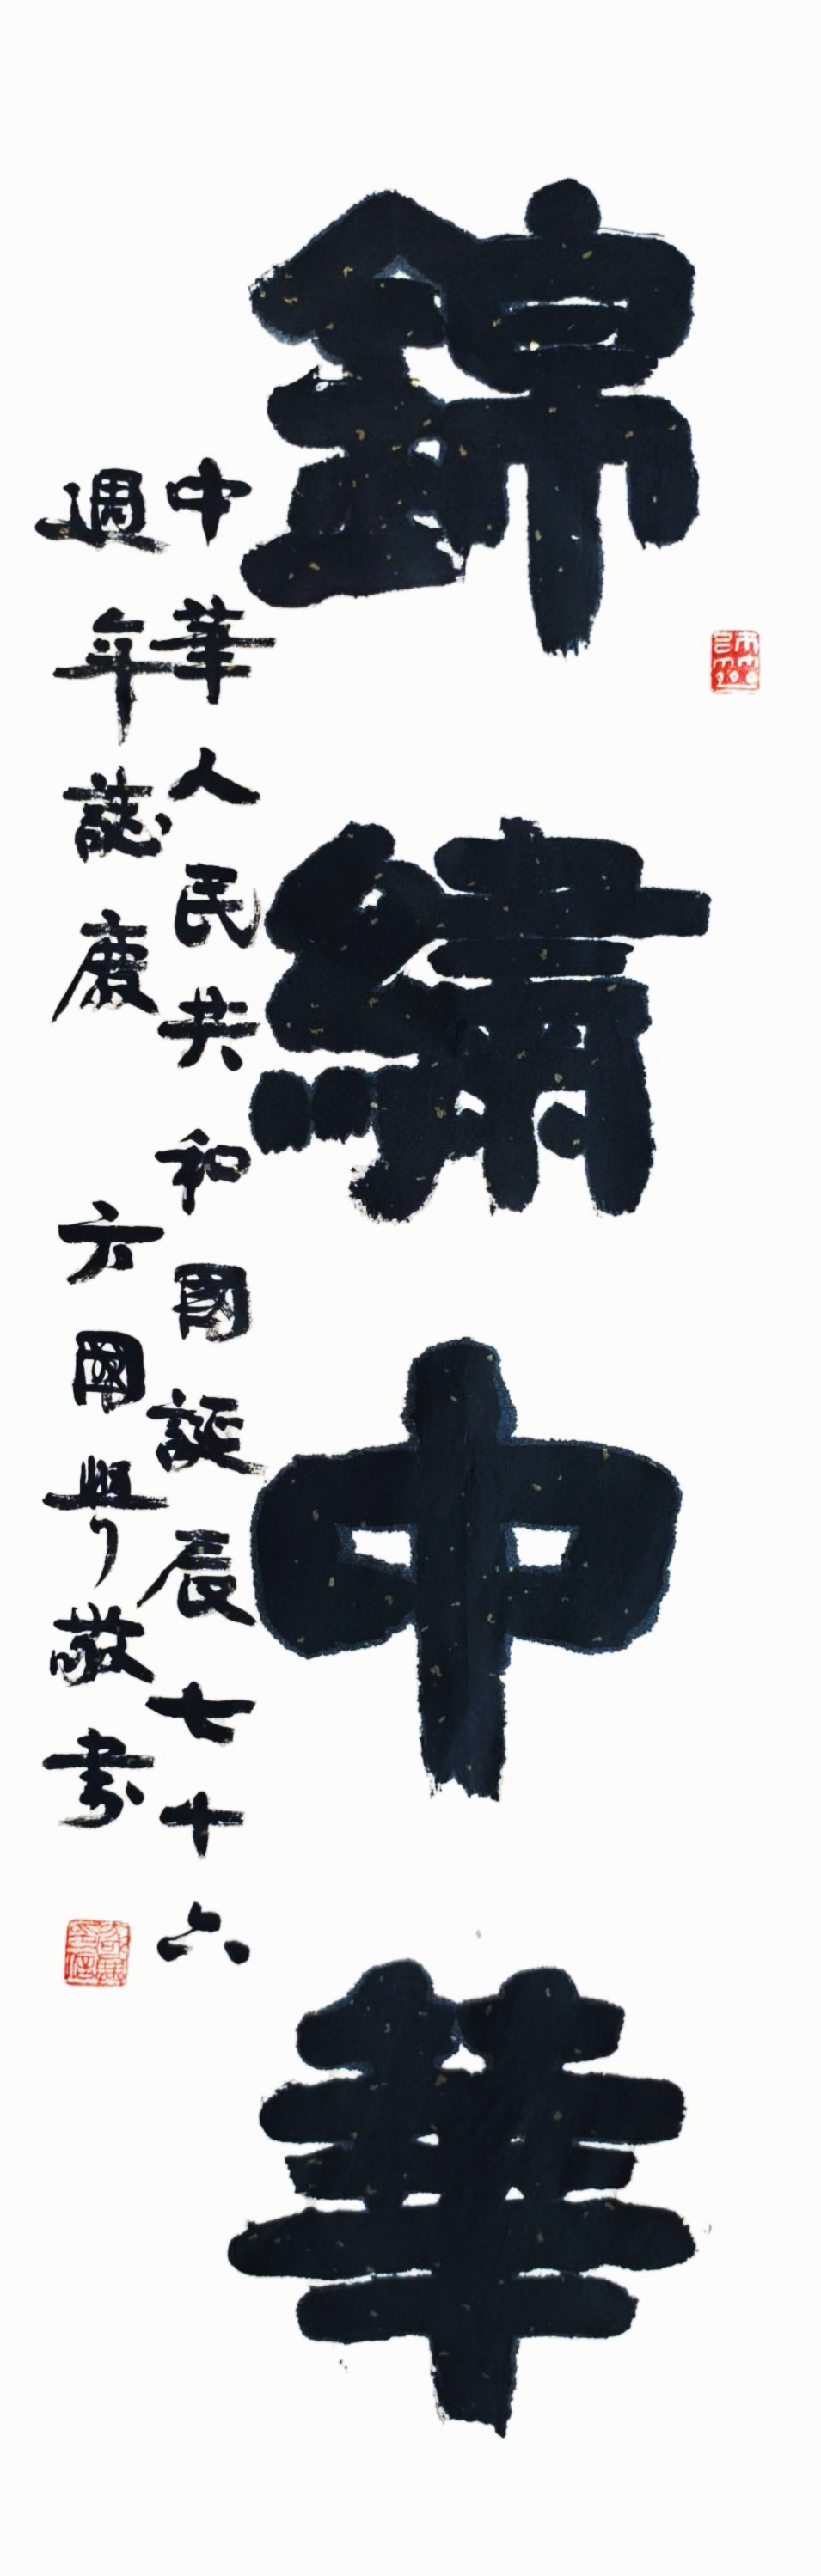 錦繡中華
中華人民共和國誕辰七十六
週年誌慶 方國興敬書